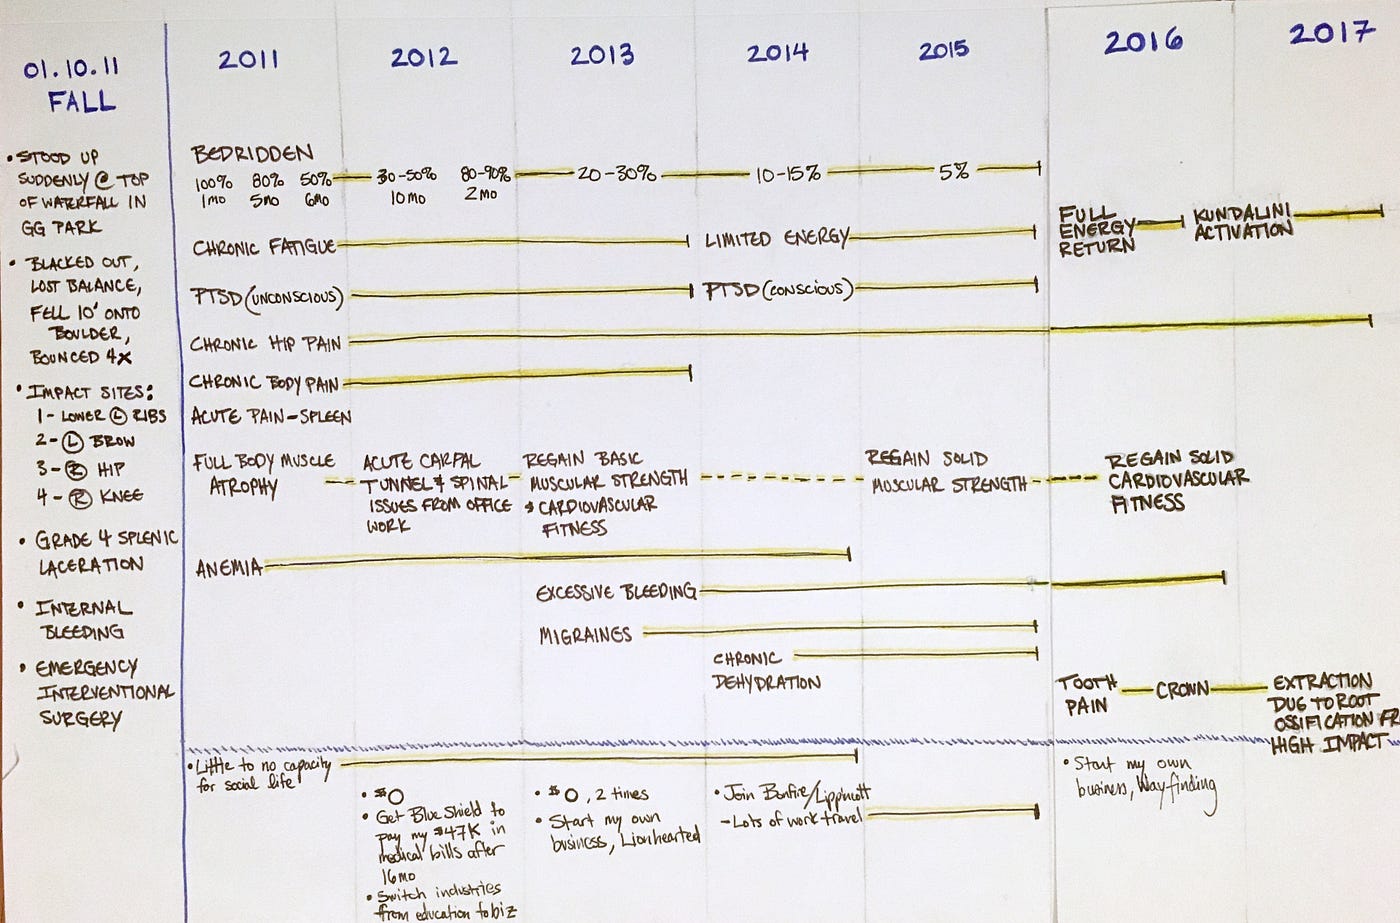 01.10.11
FALL
2011
2012
2013
2014
2015
2016
2017
• STOOD UP
SUDDENLY @ TOP
OF WATERFALL IN
GG PARK
• BLACKED OUT,
LOST BALANCE,
FELL 10' ONTO
BOULDER,
BOUNCED 4X
• IMPACT SITES:
1- LOWER Ⓛ RIBS
2- Ⓛ BROW
3- Ⓡ HIP
4- Ⓡ KNEE
• GRADE 4 SPLENIC
LACERATION
• INTERNAL
BLEEDING
• EMERGENCY
INTERVENTIONAL
SURGERY
BEDRIDDEN
100% 80% 50% 30-50% 80-90% 20-30% 10-15% 5%
1mo 5mo 6mo 10mo 2mo
FULL
ENERGY
RETURN
KUNDALINI
ACTIVATION
CHRONIC FATIGUE
LIMITED ENERGY
PTSD (UNCONSCIOUS)
PTSD (CONSCIOUS)
CHRONIC HIP PAIN
CHRONIC BODY PAIN
ACUTE PAIN-SPLEEN
FULL BODY MUSCLE
ATROPHY
ACUTE CARPAL
TUNNEL & SPINAL
ISSUES FROM OFFICE
WORK
REGAIN BASIC
MUSCULAR STRENGTH
& CARDIOVASCULAR
FITNESS
REGAIN SOLID
MUSCULAR STRENGTH
REGAIN SOLID
CARDIOVASCULAR
FITNESS
ANEMIA
EXCESSIVE BLEEDING
MIGRAINES
CHRONIC
DEHYDRATION
TOOTH
PAIN
CROWN
EXTRACTION
DUE TO ROOT
OSSIFICATION FR
HIGH IMPACT
• Little to no capacity
for social life
• $0
• Get Blue Shield to
pay my $47K in
medical bills after
16mo
• Switch industries
from education to biz
• $0, 2 times
• Start my own
business, Lionhearted
• Join Bonfire/Lippincott
- Lots of work travel
• Start my own
business, Wayfinding